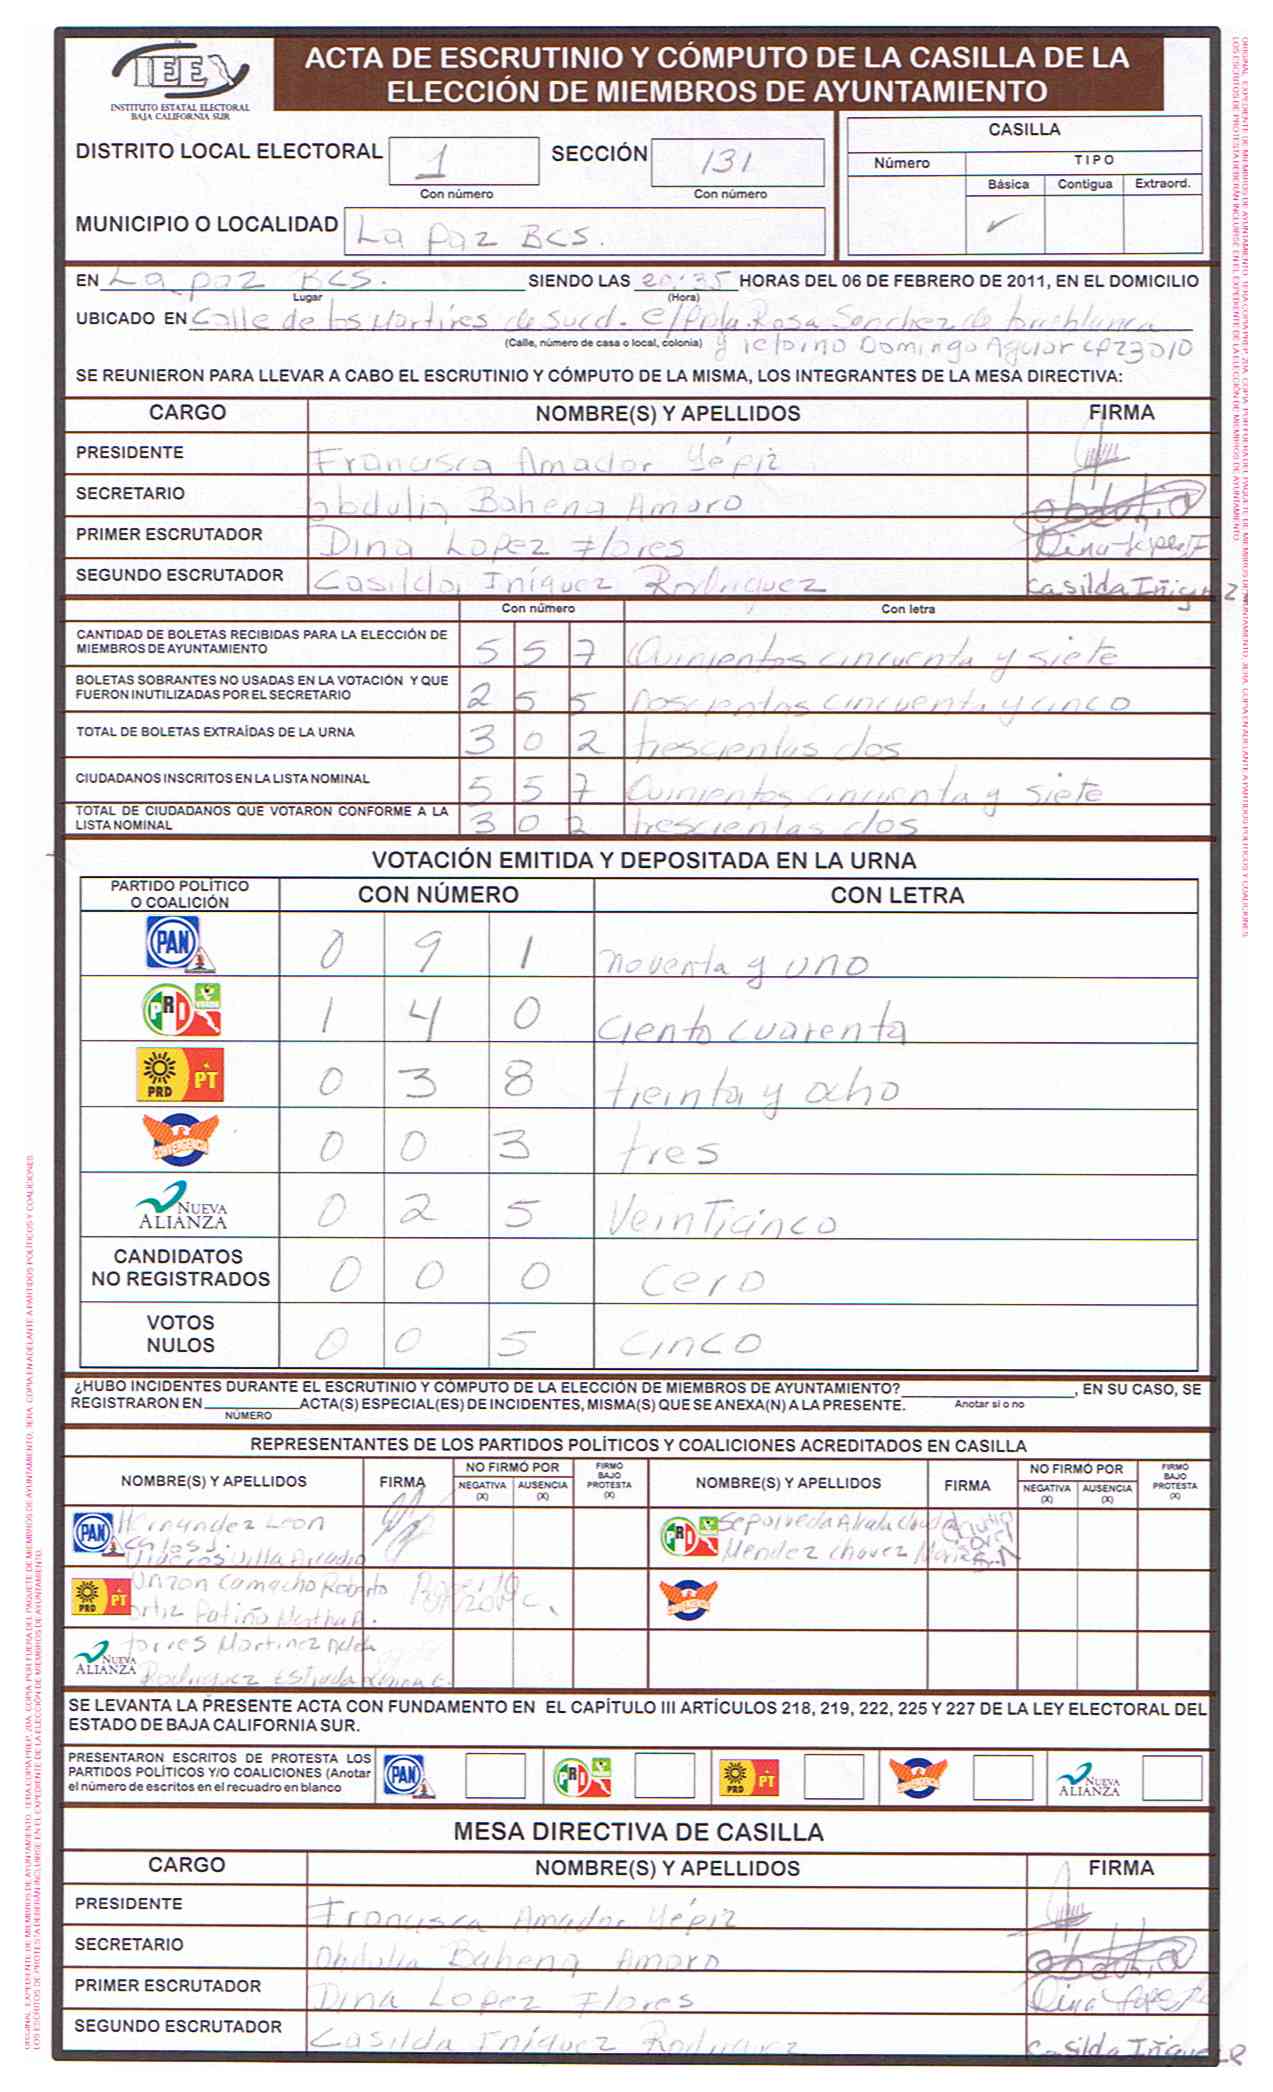 IEE
INSTITUTO ESTATAL ELECTORAL
BAJA CALIFORNIA SUR
ACTA DE ESCRUTINIO Y CÓMPUTO DE LA CASILLA DE LA
ELECCIÓN DE MIEMBROS DE AYUNTAMIENTO
DISTRITO LOCAL ELECTORAL 1 SECCIÓN 131
Con número Con número
MUNICIPIO O LOCALIDAD La Paz BCS.
CASILLA
Número TIPO
Básica Contigua Extraord.
✓
EN La paz BCS. SIENDO LAS 20:35 HORAS DEL 06 DE FEBRERO DE 2011, EN EL DOMICILIO
Lugar (Hora)
UBICADO EN Calle de los Martires de Sucd. e/ppla. Rosa Sanchez de
(Calle, número de casa o local, colonia) y retorno Domingo Aguiar CP23010
SE REUNIERON PARA LLEVAR A CABO EL ESCRUTINIO Y CÓMPUTO DE LA MISMA, LOS INTEGRANTES DE LA MESA DIRECTIVA:
CARGO NOMBRE(S) Y APELLIDOS FIRMA
PRESIDENTE Francisca Amador Yépiz
SECRETARIO obdulia Bahena Amaro obdulia
PRIMER ESCRUTADOR Dina Lopez Flores Dina López F
SEGUNDO ESCRUTADOR Casilda Iníguez Rodriguez Casilda Iñiguez
Con número Con letra
CANTIDAD DE BOLETAS RECIBIDAS PARA LA ELECCIÓN DE
MIEMBROS DE AYUNTAMIENTO 5 5 7 Quinientos cincuenta y siete
BOLETAS SOBRANTES NO USADAS EN LA VOTACIÓN Y QUE
FUERON INUTILIZADAS POR EL SECRETARIO 2 5 5 Doscientos cincuenta y cinco
TOTAL DE BOLETAS EXTRAÍDAS DE LA URNA 3 0 2 trescientas dos
CIUDADANOS INSCRITOS EN LA LISTA NOMINAL 5 5 7 Quinientos cincuenta y siete
TOTAL DE CIUDADANOS QUE VOTARON CONFORME A LA
LISTA NOMINAL 3 0 2 trescientas dos
VOTACIÓN EMITIDA Y DEPOSITADA EN LA URNA
PARTIDO POLÍTICO
O COALICIÓN CON NÚMERO CON LETRA
PAN 0 9 1 noventa y uno
PRI VERDE 1 4 0 ciento cuarenta
PRD PT 0 3 8 treinta y ocho
CONVERGENCIA 0 0 3 tres
NUEVA ALIANZA 0 2 5 Veinticinco
CANDIDATOS
NO REGISTRADOS 0 0 0 cero
VOTOS
NULOS 0 0 5 cinco
¿HUBO INCIDENTES DURANTE EL ESCRUTINIO Y CÓMPUTO DE LA ELECCIÓN DE MIEMBROS DE AYUNTAMIENTO? , EN SU CASO, SE
REGISTRARON EN ACTA(S) ESPECIAL(ES) DE INCIDENTES, MISMA(S) QUE SE ANEXA(N) A LA PRESENTE. Anotar si o no
NÚMERO
REPRESENTANTES DE LOS PARTIDOS POLÍTICOS Y COALICIONES ACREDITADOS EN CASILLA
NOMBRE(S) Y APELLIDOS FIRMA NO FIRMÓ POR NEGATIVA (X) AUSENCIA (X) FIRMÓ BAJO PROTESTA (X) NOMBRE(S) Y APELLIDOS FIRMA NO FIRMÓ POR NEGATIVA (X) AUSENCIA (X) FIRMÓ BAJO PROTESTA (X)
PAN Hernandez Leon
Carlos J.
Villa Arcadio
PRI Sepulveda Alcala
Mendez Chavez Maria
PRD PT Unzon Camacho Roberto
Ortiz Patiño Martha
CONVERGENCIA
NUEVA ALIANZA Torres Martinez
Rodriguez Estrada
SE LEVANTA LA PRESENTE ACTA CON FUNDAMENTO EN EL CAPÍTULO III ARTÍCULOS 218, 219, 222, 225 Y 227 DE LA LEY ELECTORAL DEL
ESTADO DE BAJA CALIFORNIA SUR.
PRESENTARON ESCRITOS DE PROTESTA LOS
PARTIDOS POLÍTICOS Y/O COALICIONES (Anotar
el número de escritos en el recuadro en blanco
PAN PRI PRD PT CONVERGENCIA NUEVA ALIANZA
MESA DIRECTIVA DE CASILLA
CARGO NOMBRE(S) Y APELLIDOS FIRMA
PRESIDENTE Francisca Amador Yépiz
SECRETARIO Obdulia Bahena Amaro obdulia
PRIMER ESCRUTADOR Dina Lopez Flores Dina López
SEGUNDO ESCRUTADOR Casilda Iníguez Rodriguez Casilda Iñiguez R